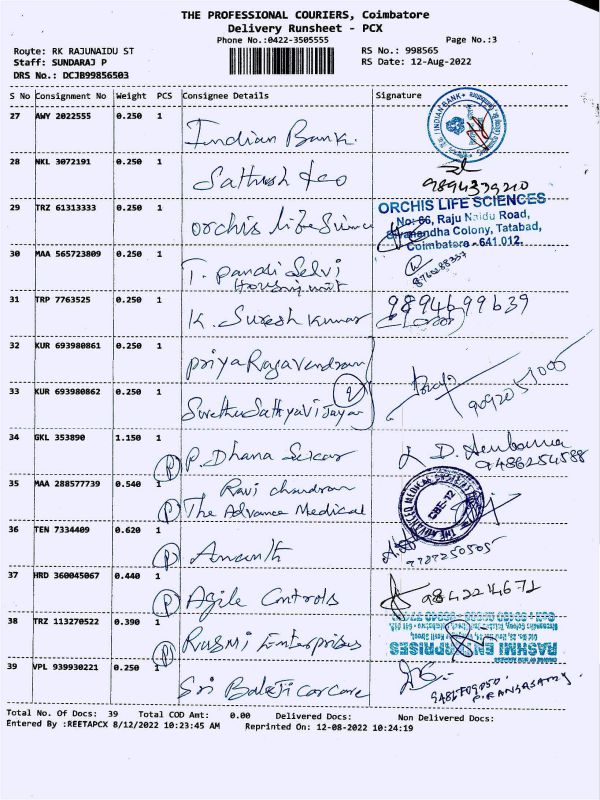 THE PROFESSIONAL COURIERS, Coimbatore
Delivery Runsheet - PCX
Phone No.:0422-3505555
Page No.:3
Route: RK RAJUNAIDU ST
RS No.: 998565
Staff: SUNDARAJ P
RS Date: 12-Aug-2022
DRS No.: DCJB99856503
S No Consignment No Weight PCS Consignee Details Signature
27 AWY 2022555 0.250 1
Indian Bank.
INDIAN BANK
28 NKL 3072191 0.250 1
Sathish
9894339210
29 TRZ 61313333 0.250 1
Orchis Life Science
ORCHIS LIFE SCIENCES
No: 66, Raju Naidu Road,
Sivanandha Colony, Tatabad,
Coimbatore - 641 012.
30 MAA 565723809 0.250 1
T. Pandi Selvi
Housing unit
31 TRP 7763525 0.250 1
K. Suresh Kumar
9894699639
32 KUR 693980861 0.250 1
Priya Ragavendran
33 KUR 693980862 0.250 1
2
34 GKL 353890 1.150 1
P P. Dhana Sekar
9486254588
35 MAA 288577739 0.540 1
Ravi chandran
P The Advance Medical
CBE-12
36 TEN 7334409 0.620 1
P Ananth
9787250505
37 HRD 360045067 0.440 1
P Agile Controls
9842214671
38 TRZ 113270522 0.390 1
P Rusmi Enterprises
RASHMI ENTERPRISES
39 VPL 939930221 0.250 1
Sri Balaji Car Care
P.RANGASAMY
Total No. Of Docs: 39 Total COD Amt: 0.00 Delivered Docs: Non Delivered Docs:
Entered By :REETAPCX 8/12/2022 10:23:45 AM Reprinted On: 12-08-2022 10:24:19